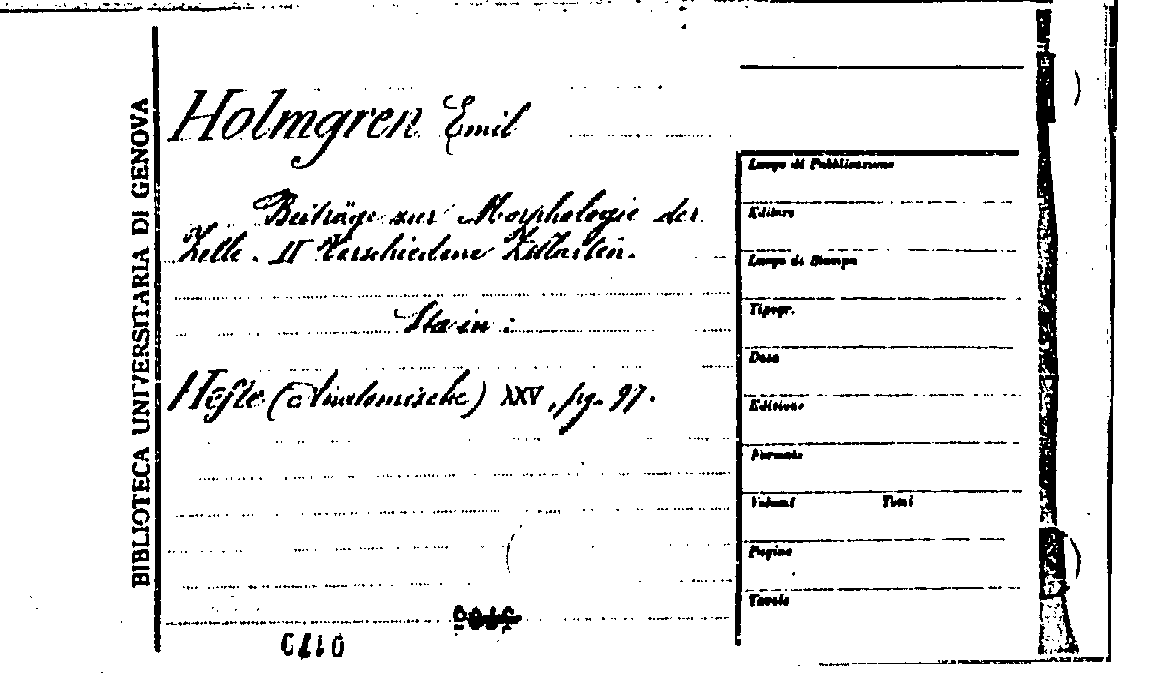 BIBLIOTECA UNIVERSITARIA DI GENOVA
Holmgren Emil
Beiträge zur Morphologie der
Zelle. II Verschiedene Zellarten.
Sta in:
Hefte (Anatomische) XXV, pg. 97.
Luogo di Pubblicazione
Editore
Luogo di Stampa
Tipogr.
Data
Edizione
Formato
Volumi Tomi
Pagine
Tavole